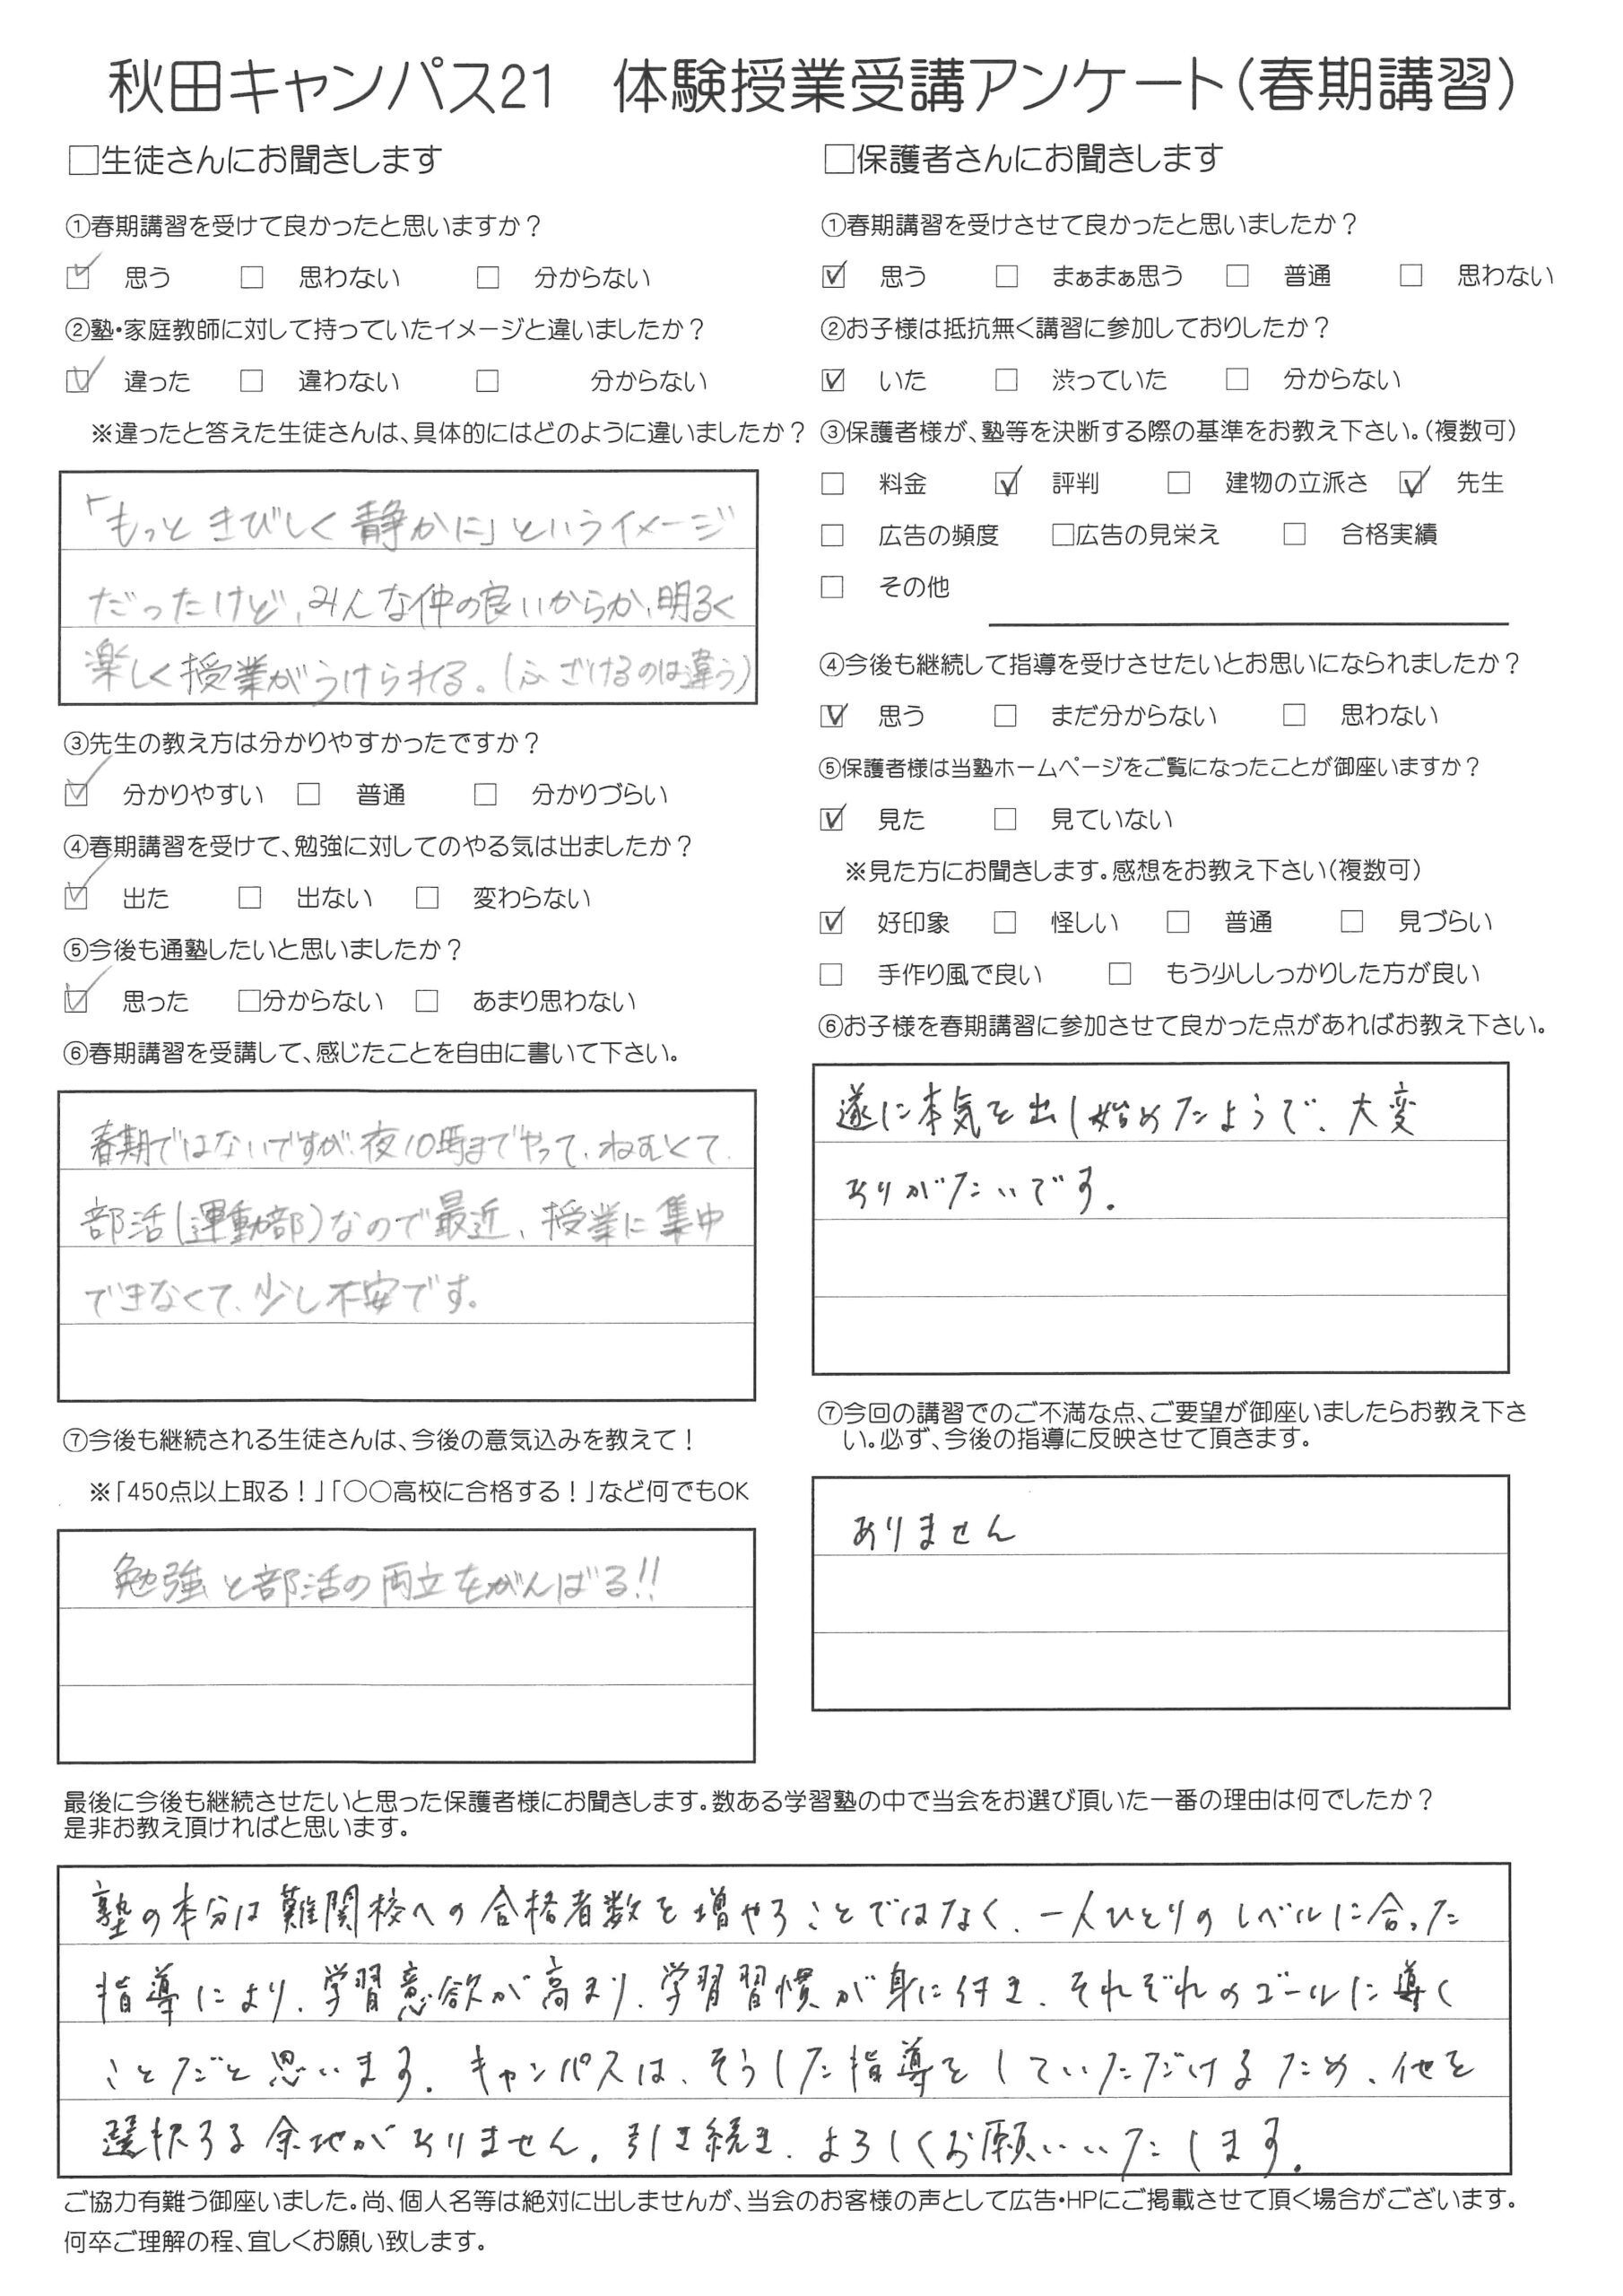 秋田キャンパス21　体験授業受講アンケート(春期講習)
□生徒さんにお聞きします
①春期講習を受けて良かったと思いますか？
☑ 思う □ 思わない □ 分からない
②塾・家庭教師に対して持っていたイメージと違いましたか？
☑ 違った □ 違わない □ 分からない
※違ったと答えた生徒さんは、具体的にはどのように違いましたか？
「もっと きびしく 静かに」というイメージ
だったけど、みんな仲の良いからか、明るく
楽しく授業がうけられてる。(ふざけるのは違う)
③先生の教え方は分かりやすかったですか？
☑ 分かりやすい □ 普通 □ 分かりづらい
④春期講習を受けて、勉強に対してのやる気は出ましたか？
☑ 出た □ 出ない □ 変わらない
⑤今後も通塾したいと思いましたか？
☑ 思った □分からない □ あまり思わない
⑥春期講習を受講して、感じたことを自由に書いて下さい。
春期ではないですが、夜10時までやって、ねむくて、
部活(運動部)なので最近、授業に集中
できなくて、少し不安です。
⑦今後も継続される生徒さんは、今後の意気込みを教えて！
※「450点以上取る！」「○○高校に合格する！」など何でもOK
勉強と部活の両立をがんばる!!
□保護者さんにお聞きします
①春期講習を受けさせて良かったと思いましたか？
☑ 思う □ まぁまぁ思う □ 普通 □ 思わない
②お子様は抵抗無く講習に参加しておりしたか？
☑ いた □ 渋っていた □ 分からない
③保護者様が、塾等を決断する際の基準をお教え下さい。(複数可)
□ 料金 ☑ 評判 □ 建物の立派さ ☑ 先生
□ 広告の頻度 □広告の見栄え □ 合格実績
□ その他
④今後も継続して指導を受けさせたいとお思いになられましたか？
☑ 思う □ まだ分からない □ 思わない
⑤保護者様は当塾ホームページをご覧になったことが御座いますか？
☑ 見た □ 見ていない
※見た方にお聞きします。感想をお教え下さい(複数可)
☑ 好印象 □ 怪しい □ 普通 □ 見づらい
□ 手作り風で良い □ もう少ししっかりした方が良い
⑥お子様を春期講習に参加させて良かった点があればお教え下さい。
遂に本気を出し始めたようで、大変
ありがたいです。
⑦今回の講習でのご不満な点、ご要望が御座いましたらお教え下さ
い。必ず、今後の指導に反映させて頂きます。
ありません
最後に今後も継続させたいと思った保護者様にお聞きします。数ある学習塾の中で当会をお選び頂いた一番の理由は何でしたか？
是非お教え頂ければと思います。
塾の本分は難関校への合格者数を増やすことではなく、一人ひとりのレベルに合った
指導により、学習意欲が高まり、学習習慣が身に付き、それぞれのゴールに導く
ことだと思います。キャンパスは、そうした指導をしていただけるため、他を
選択する余地がありません。引き続き、よろしくお願いいたします。
ご協力有難う御座いました。尚、個人名等は絶対に出しませんが、当会のお客様の声として広告・HPにご掲載させて頂く場合がございます。
何卒ご理解の程、宜しくお願い致します。